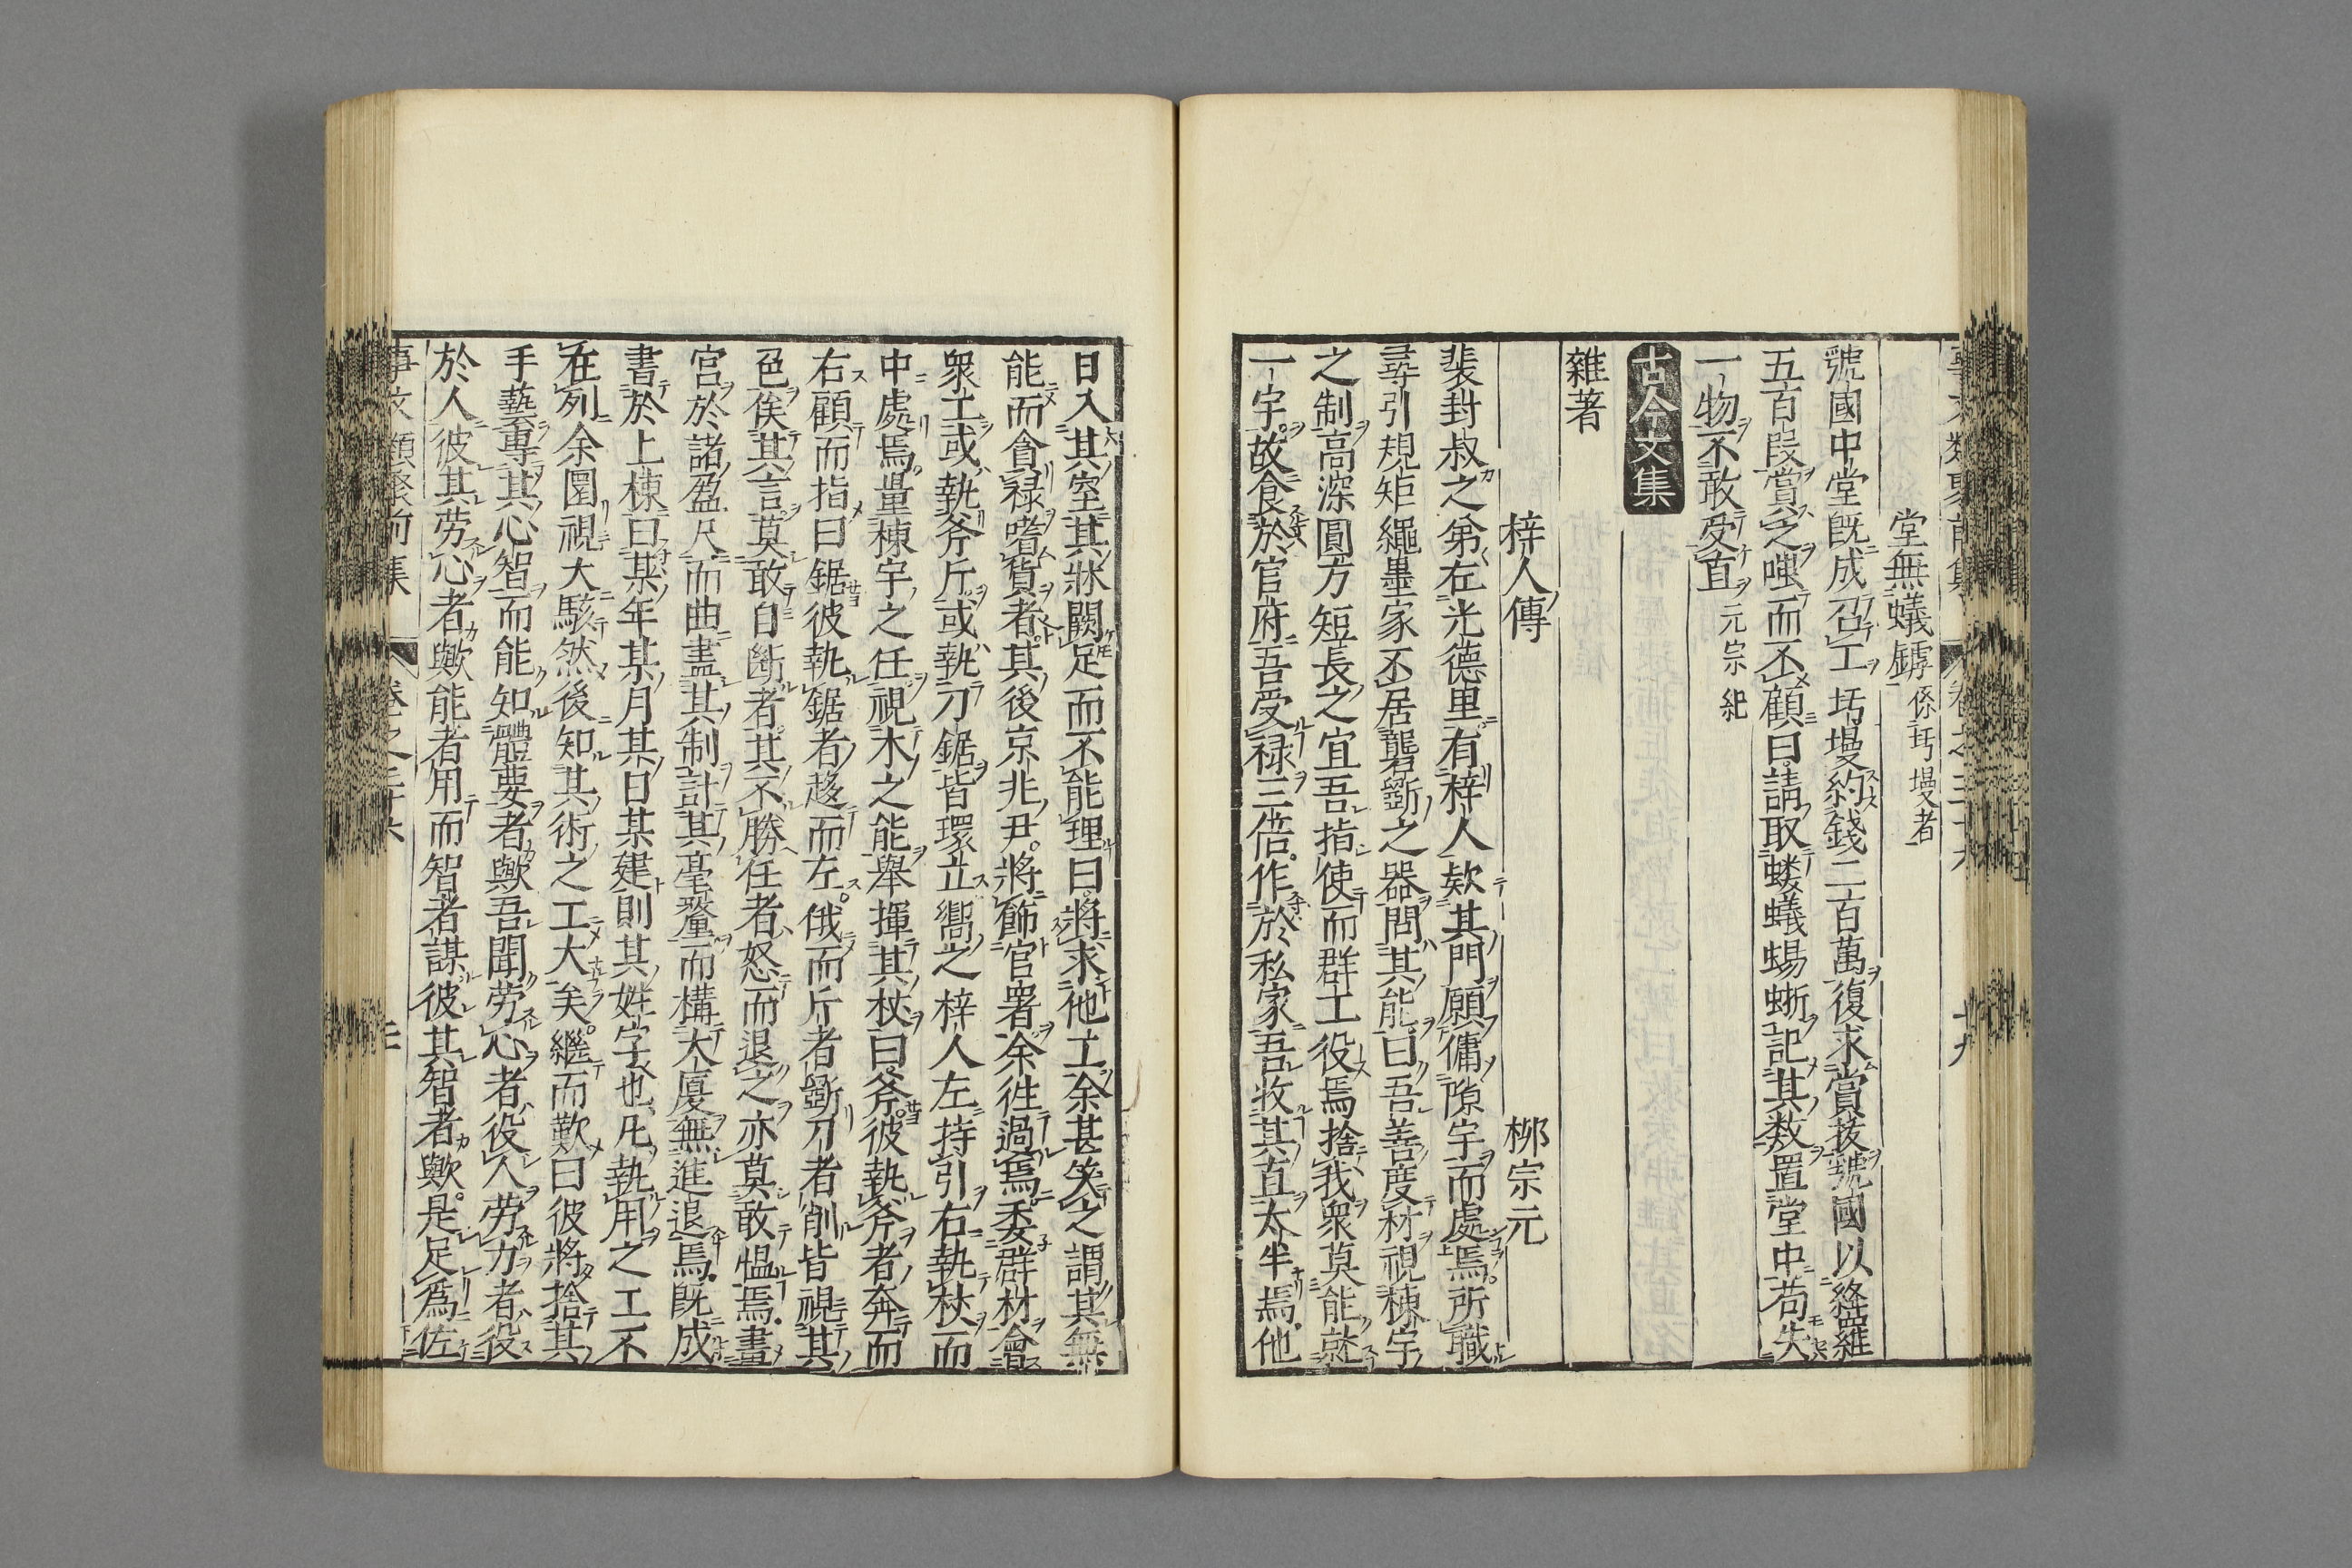 堂無蟻罅係圬墁者
虢國中堂既成召工圬墁約錢二百萬復求賞拔虢國以絳羅
五百段賞之嗤而不顧曰請取螻蟻蜴蜥記其数置堂中苟失
一物不敢受直元宗紀
古今文集
雜著
梓人傳 柳宗元
裴封叔之第在光德里有梓人欵其門願傭隙宇而處焉所職
尋引規矩繩墨家不居礱斵之器問其能曰吾善度材視棟宇
之制高深圓方短長之宜吾指使而群工役焉捨我衆莫能就
一宇故食於官府吾受禄三倍作於私家吾收其直太半焉他
日入其室其牀闕足而不能理曰將求他工余甚笑之謂其無
能而貪禄嗜貨者其後京兆尹將飾官署余徃過焉委群材會
衆工或執斧斤或執刀鋸皆環立嚮之梓人左持引右執杖而
中處焉量棟宇之任視木之能舉揮其杖曰斧彼執斧者奔而
右顧而指曰鋸彼執鋸者趍而左俄而斤者斵刀者削皆視其
色俟其言莫敢自断者其不勝任者怒而退之亦莫敢愠焉畫
宮於諸盈尺而曲盡其制計其毫釐而構大厦無進退焉既成
書於上棟曰某年某月某日某建則其姓字也凡執用之工不
在列余圜視大駭然後知其術之工大矣繼而歎曰彼將捨其
手藝專其心智而能知體要者歟吾聞勞心者役人勞力者役
於人彼其劳心者歟能者用而智者謀彼其智者歟是足爲佐
事文類聚前集 卷之三十六